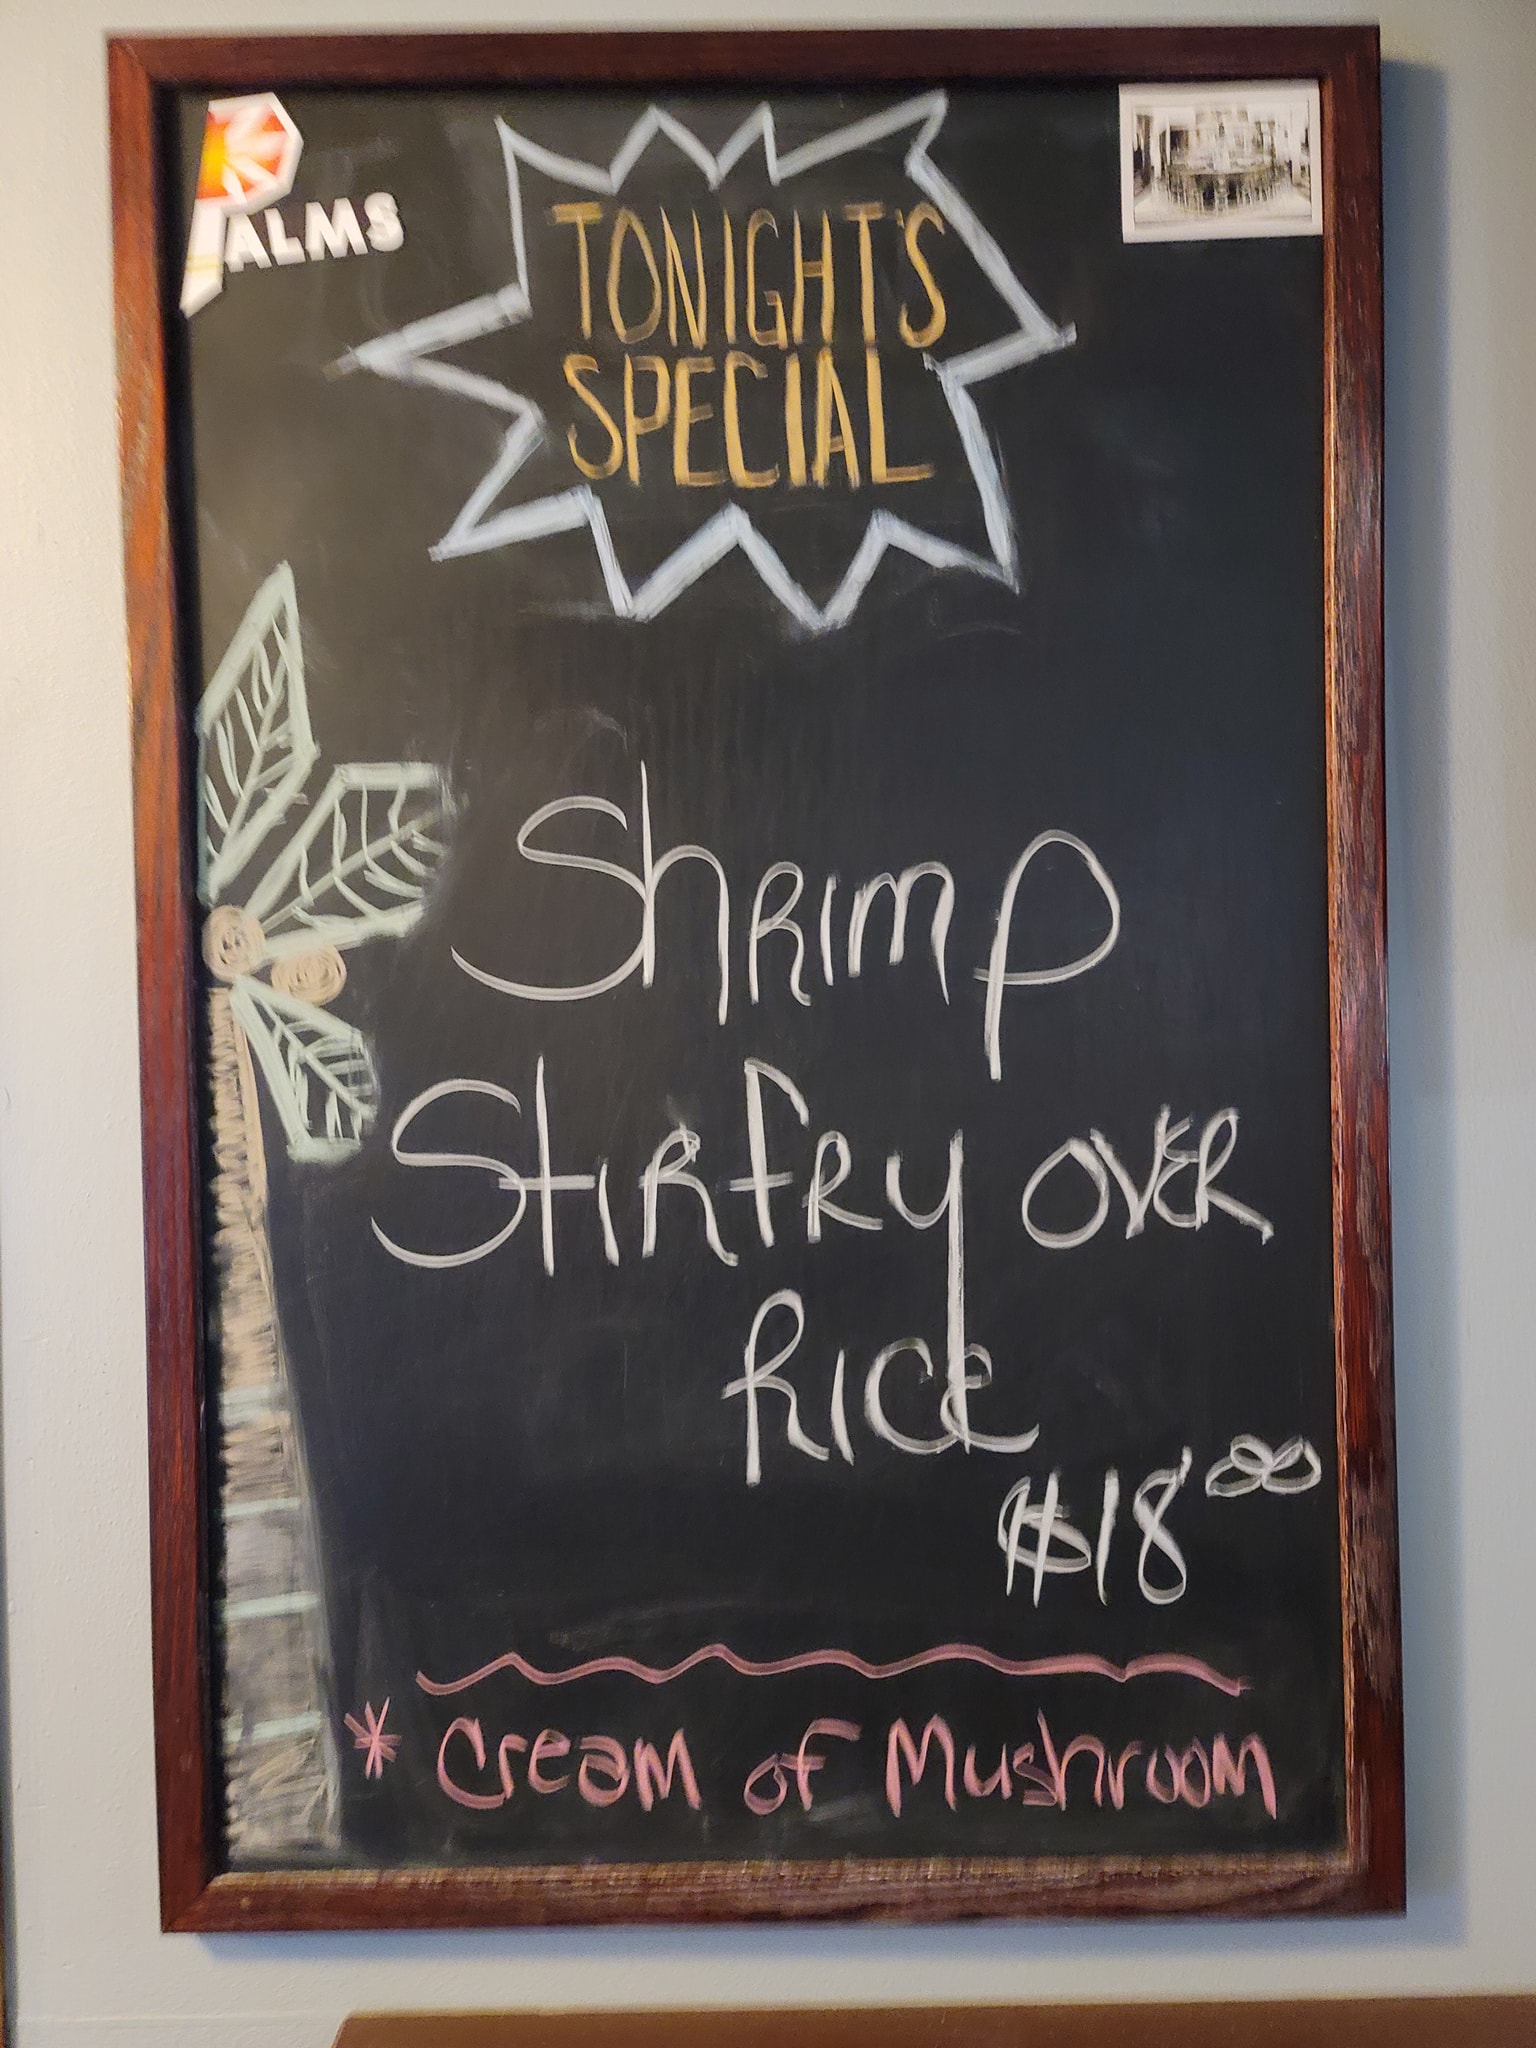 PALMS
TONIGHT'S
SPECIAL
Shrimp
Stirfry over
Rice
$18.00
* Cream of Mushroom